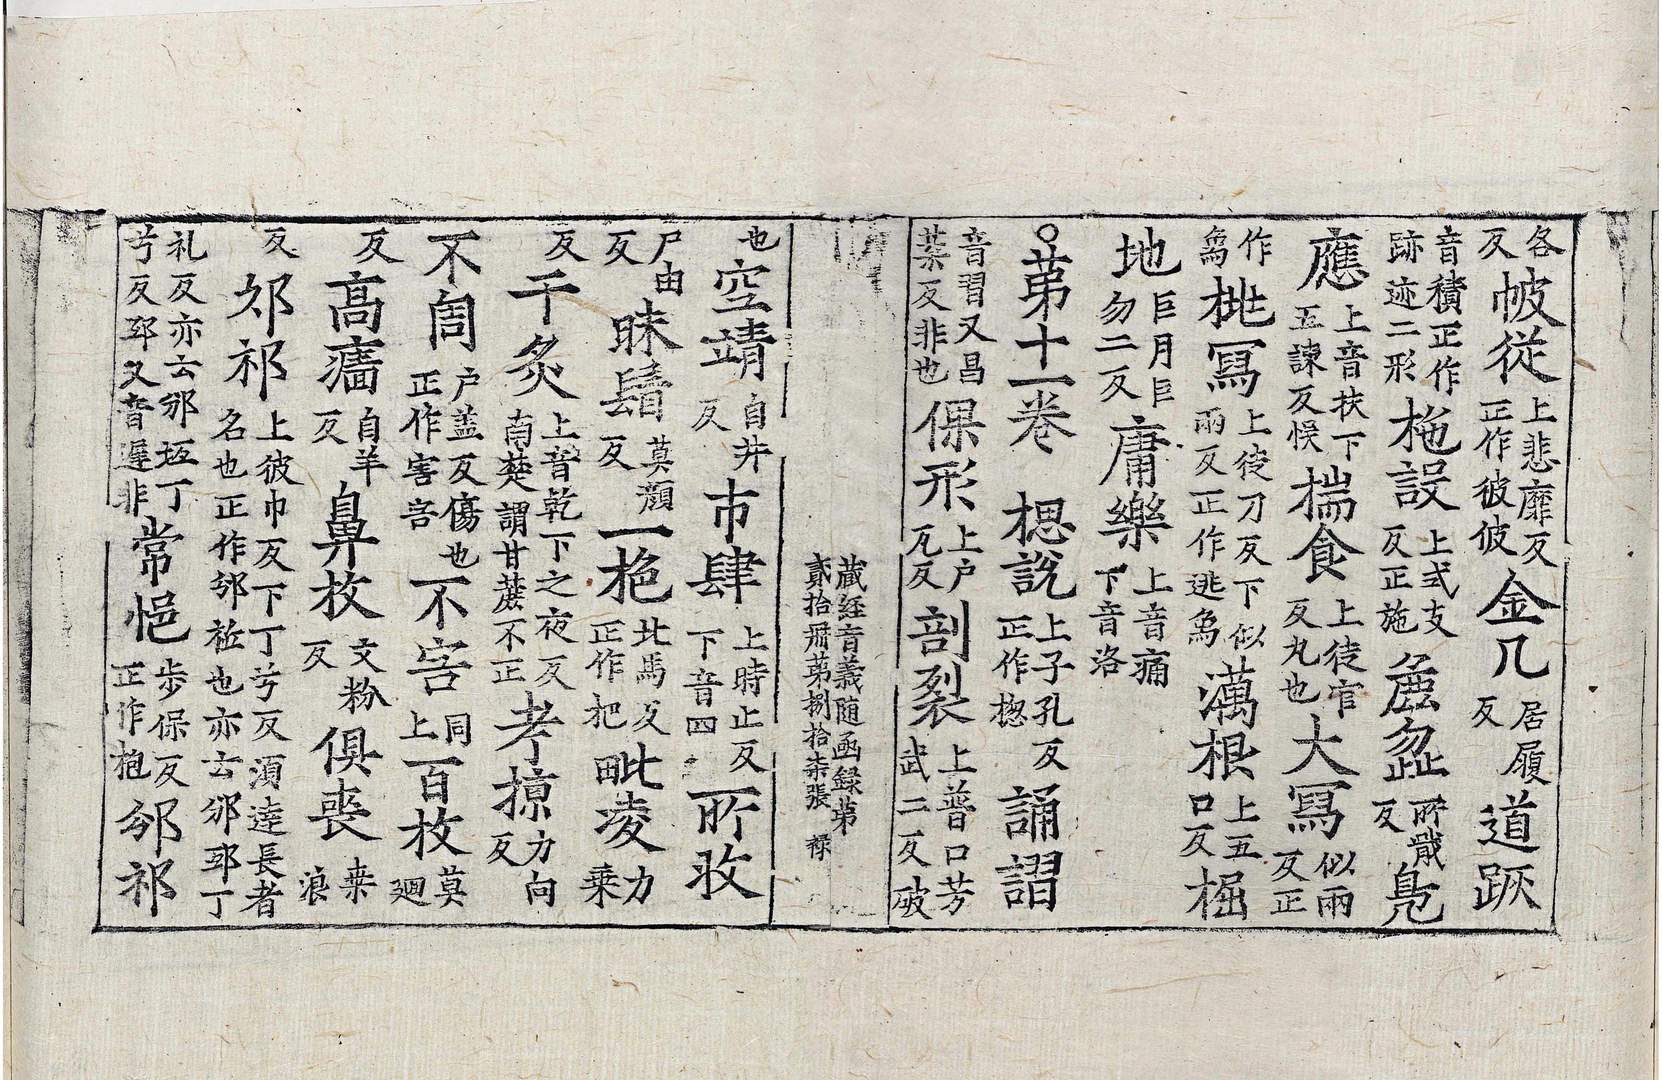 各反帔從上悲靡反正作彼彼金几居履反道䟦
音積正作跡迹二形柂設上式支反正施麁澁所戢反鳬
應上音扶下五諫反悮揣食上徒官反丸也大冩似兩反正
作爲桃冩上徒刀反下似兩反正作逃爲㵧根上五口反掘
地巨月巨勿二反庸樂上音痛下音洛
○苐十一卷 揌說上子孔反正作揔誦謵
音習又昌葉反非也倮形上户瓦反剖裂上普口芳武二反破
藏經音義随函録苐
貳拾册苐捌拾柒張 禄
也空靖自井反市肆上時止反下音四所收
尸由反昧鬙莫顏反一杷北馬反正作把毗淩力乗
反干炙上音乾下之夜反南楚謂甘蔗不正考掠力向反
不周户盖反傷也正作害吝不害同上百枚莫迴
反高廧自羊反鼻枚文粉反俱䘮桒浪
反邠祁上彼巾反下丁兮反湏逹長者名也正作邠祗也亦云邠邳丁
礼反亦云邠坻丁兮反邳又音遲非常悒步保反正作抱邠祁